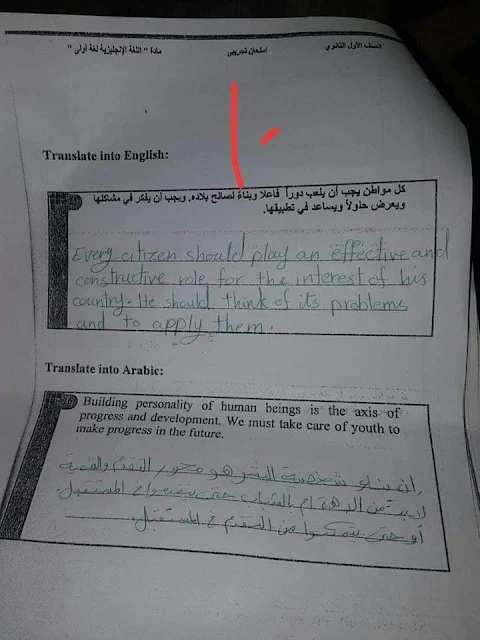 الصف الأول الثانوي امتحان تجريبى مادة " اللغة الإنجليزية لغة أولى "
Translate into English:
كل مواطن يجب أن يلعب دوراً فاعلا وبناءً لصالح بلاده. ويجب أن يفكر في مشاكلها
ويعرض حلولاً ويساعد في تطبيقها.
Every citizen should play an effective and
constructive role for the interest of his
country. He should think of its problems
and to apply them.
Translate into Arabic:
Building personality of human beings is the axis of
progress and development. We must take care of youth to
make progress in the future.
إن بناء شخصية البشر هو محور التقدم والتنمية
لابد من الاهتمام بالشباب حتى يتقدموا في المستقبل.
أو حتى يتمكنوا من التقدم في المستقبل